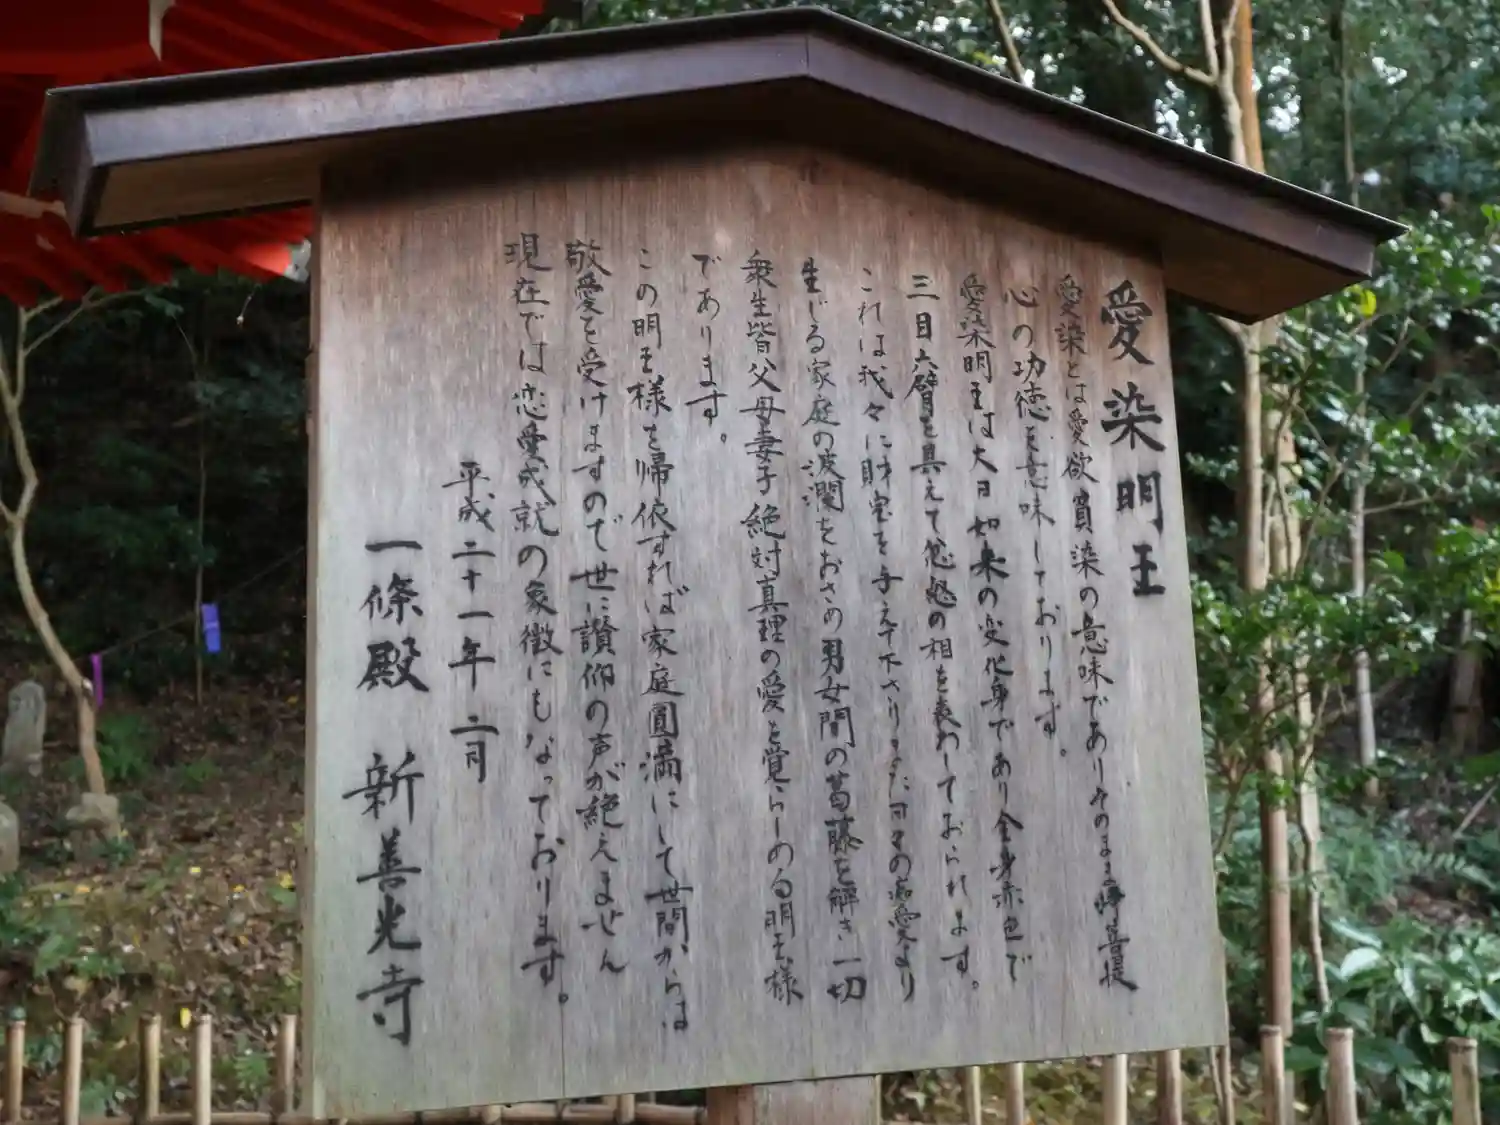 愛染明王
愛染とは愛欲貪染の意味でありそのまま浄菩提
心の功徳を意味しております。
愛染明王は大日如来の変化身であり全身赤色で
三目六臂を具えて忿怒の相を表わしておられます。
これは我々に財宝を与えて下さりまた日々の恋愛より
生じる家庭の波瀾をおさめ男女間の葛藤を解き一切
衆生皆父母妻子絶対真理の愛を覚らしめる明王様
であります。
この明王様を帰依すれば家庭圓満にして世間からは
敬愛を受けますので世に讃仰の声が絶えません
現在では恋愛成就の象徴にもなっております。
平成二十一年 二月
一條殿 新善光寺